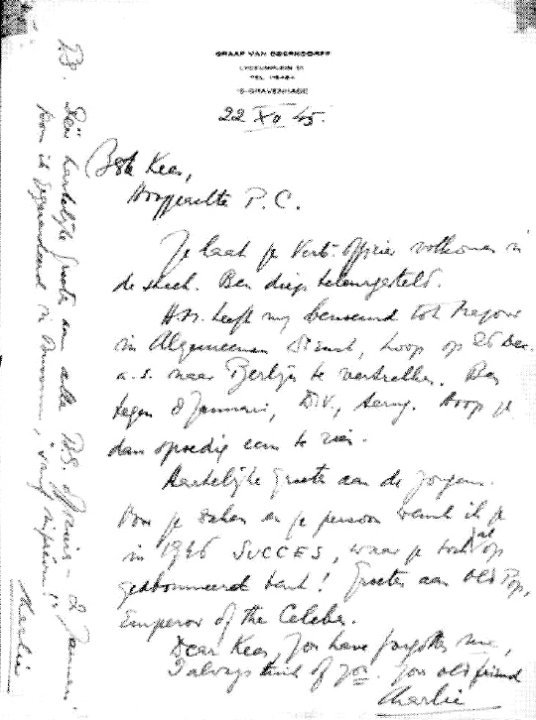 GRAAF VAN OBERNDORFF
LYCEUMPLEIN
TEL.
'S-GRAVENHAGE
22 XII 45.
Beste Kees,
Hooggeachte P.C.
Je laat je Verb. officier volkomen in
de steek. Ben diep teleurgesteld.
H.M. heeft mij benoemd tot Majoor
in Algemeenen Dienst, hoop op 26 Dec.
a.s. naar Berlijn te vertrekken. Ben
tegen 8 Januari, D.V., terug. Hoop je
dan spoedig eens te zien.
Hartelijke groeten aan de jongens.
Voor je zaken en je persoon wensch ik je
in 1946 SUCCES, waar je toch al op
geabonneerd bent! Groeten aan old Pop,
Emperor of the Celebes.
Dear Kees, you have forgotten me,
I always think of you. Your old friend
Charlie
P.S. Doe hartelijke groeten aan alle B.S. officieren - 2 Januari
kom ik in Bussum,
Charlie